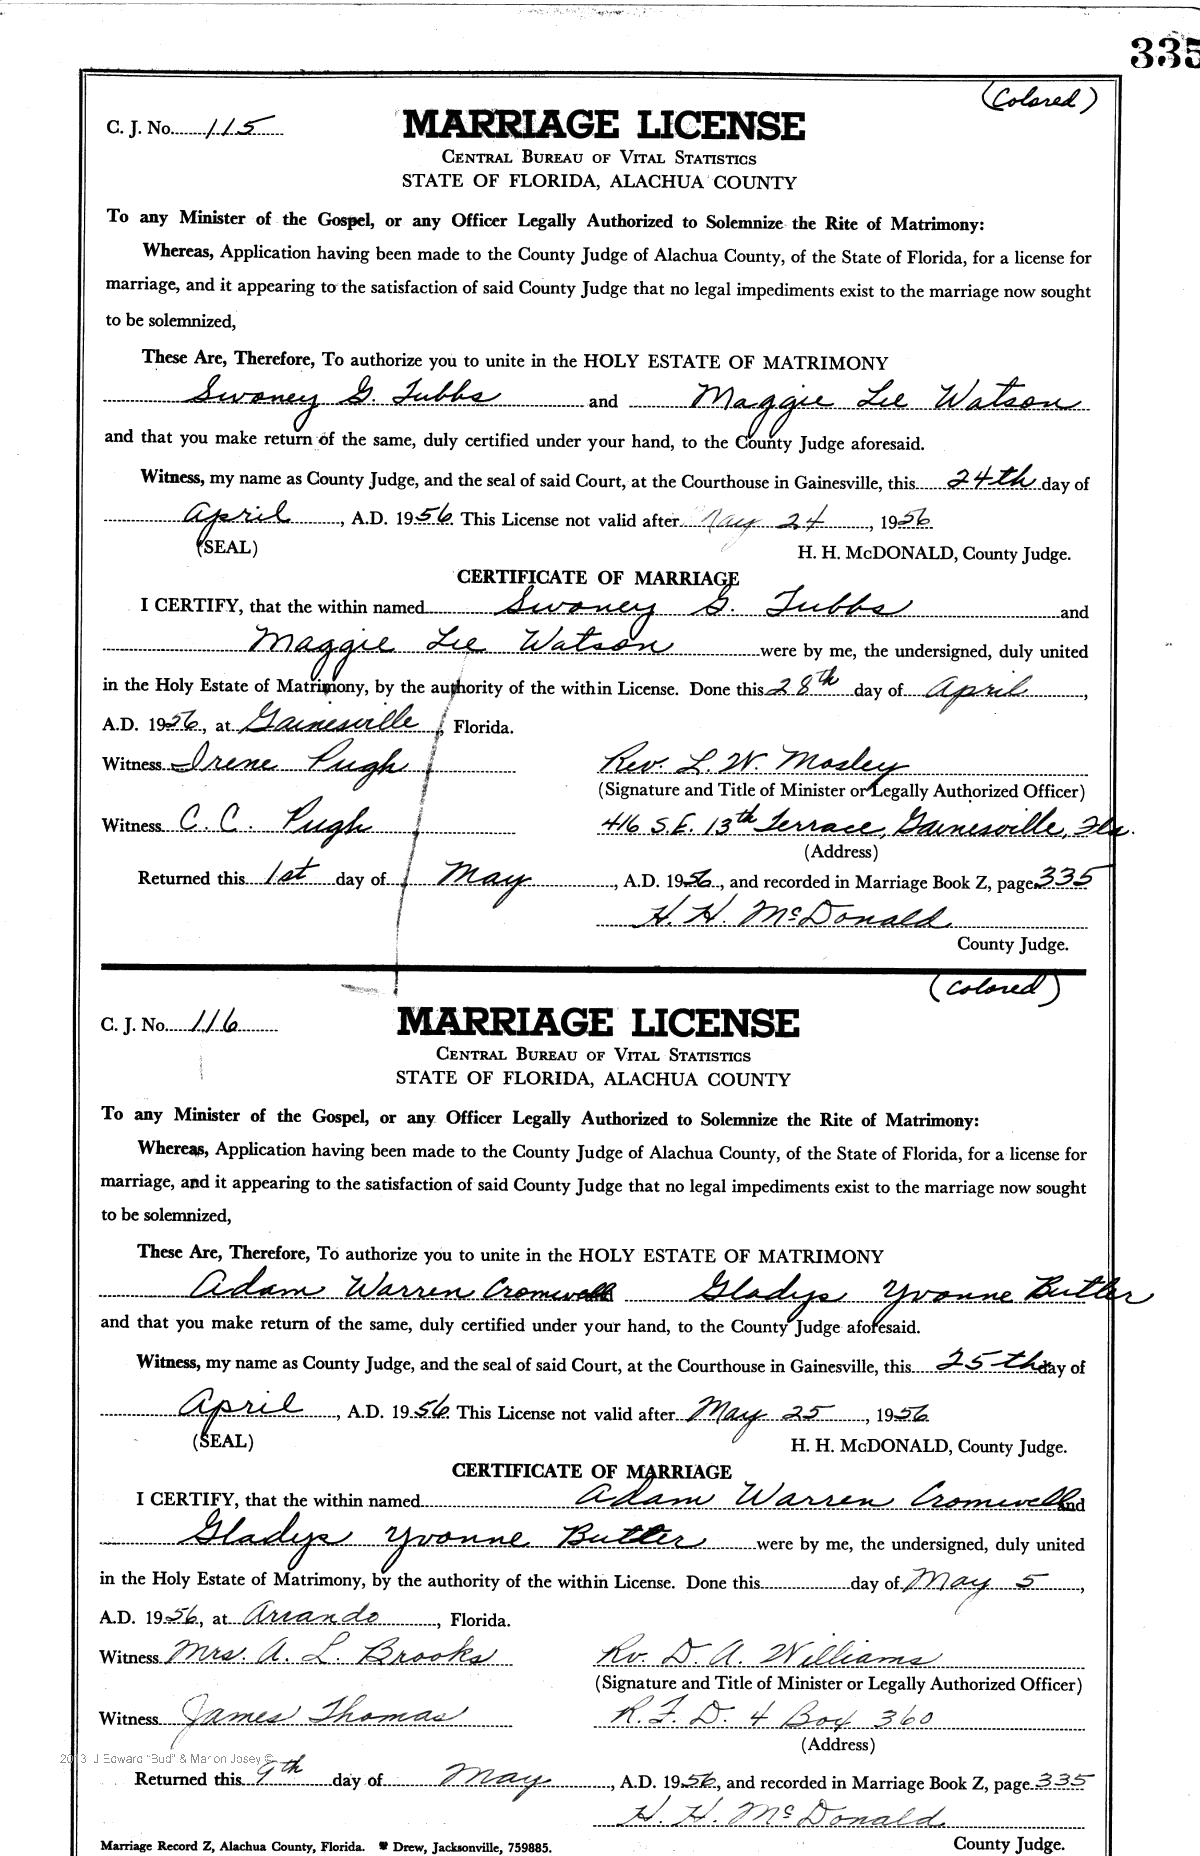 335
(Colored)
C. J. No. 115
MARRIAGE LICENSE
CENTRAL BUREAU OF VITAL STATISTICS
STATE OF FLORIDA, ALACHUA COUNTY
To any Minister of the Gospel, or any Officer Legally Authorized to Solemnize the Rite of Matrimony:
Whereas, Application having been made to the County Judge of Alachua County, of the State of Florida, for a license for
marriage, and it appearing to the satisfaction of said County Judge that no legal impediments exist to the marriage now sought
to be solemnized,
These Are, Therefore, To authorize you to unite in the HOLY ESTATE OF MATRIMONY
Swoney G. Tubbs and Maggie Lee Watson
and that you make return of the same, duly certified under your hand, to the County Judge aforesaid.
Witness, my name as County Judge, and the seal of said Court, at the Courthouse in Gainesville, this 24th day of
April, A.D. 1956. This License not valid after May 24, 1956
(SEAL) H. H. McDONALD, County Judge.
CERTIFICATE OF MARRIAGE
I CERTIFY, that the within named Swoney G. Tubbs and
Maggie Lee Watson were by me, the undersigned, duly united
in the Holy Estate of Matrimony, by the authority of the within License. Done this 28th day of April,
A.D. 1956, at Gainesville, Florida.
Witness Irene Pugh Rev. L. W. Mosley
(Signature and Title of Minister or Legally Authorized Officer)
Witness C. C. Pugh 416 S.E. 13th Terrace, Gainesville, Fla.
(Address)
Returned this 1st day of May, A.D. 1956, and recorded in Marriage Book Z, page 335
H. H. McDonald
County Judge.
(Colored)
C. J. No. 116
MARRIAGE LICENSE
CENTRAL BUREAU OF VITAL STATISTICS
STATE OF FLORIDA, ALACHUA COUNTY
To any Minister of the Gospel, or any Officer Legally Authorized to Solemnize the Rite of Matrimony:
Whereas, Application having been made to the County Judge of Alachua County, of the State of Florida, for a license for
marriage, and it appearing to the satisfaction of said County Judge that no legal impediments exist to the marriage now sought
to be solemnized,
These Are, Therefore, To authorize you to unite in the HOLY ESTATE OF MATRIMONY
Adam Warren Cromwell Gladys Yvonne Butler
and that you make return of the same, duly certified under your hand, to the County Judge aforesaid.
Witness, my name as County Judge, and the seal of said Court, at the Courthouse in Gainesville, this 25th day of
April, A.D. 1956. This License not valid after May 25, 1956
(SEAL) H. H. McDONALD, County Judge.
CERTIFICATE OF MARRIAGE
I CERTIFY, that the within named Adam Warren Cromwell and
Gladys Yvonne Butler were by me, the undersigned, duly united
in the Holy Estate of Matrimony, by the authority of the within License. Done this day of May 5,
A.D. 1956, at Arrando, Florida.
Witness Mrs. A. L. Brooks Rv. D. A. Williams
(Signature and Title of Minister or Legally Authorized Officer)
Witness James Thomas R.F.D. 4 Box 360
(Address)
2013 J Edward "Bud" & Marion Josey ©
Returned this 9th day of May, A.D. 1956, and recorded in Marriage Book Z, page 335
H. H. McDonald
Marriage Record Z, Alachua County, Florida. Drew, Jacksonville, 759885. County Judge.